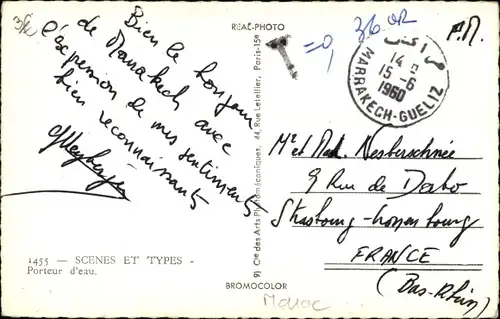 Bien le bonjour
de Marrakech avec
l'expression de mes sentiments
bien reconnaissants
1455 — SCENES ET TYPES -
Porteur d'eau.
REAL-PHOTO
9) Cie des Arts Photomécaniques, 44, Rue Letellier, Paris-15e
BROMOCOLOR
Maroc
T = 0,
36 02
P.M.
14
15-6
1960
MARRAKECH-GUELIZ
Mr et Mad. Nesberschnée
9 Rue de Dabo
Strasbourg
FRANCE
(Bas-Rhin)